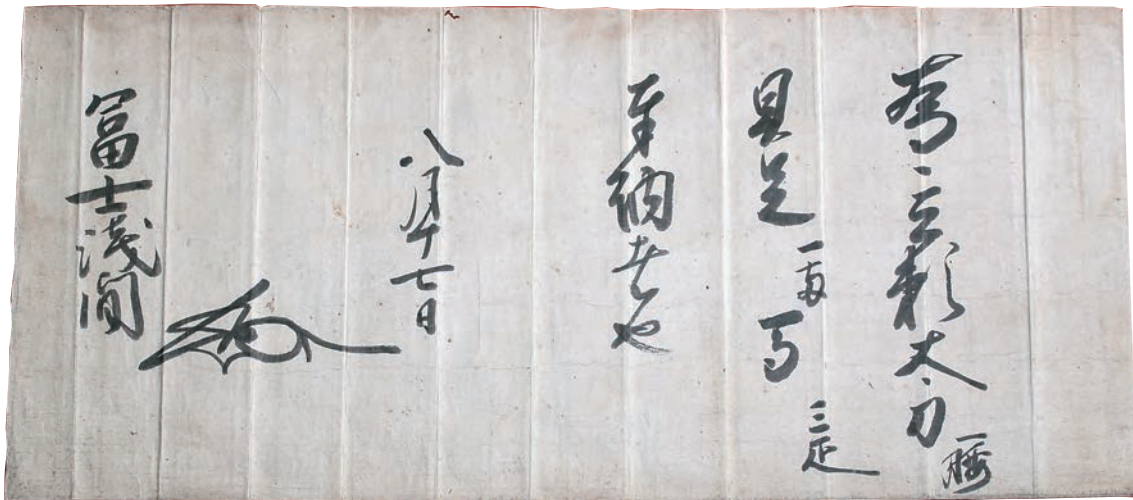 為立願太刀一腰
具足一両馬三疋
奉納者也
八月十七日
冨士浅間